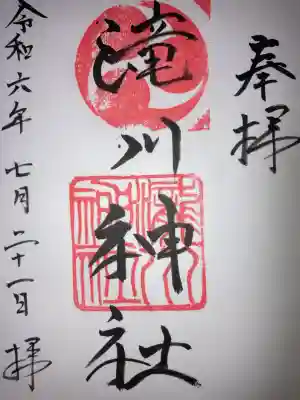 奉拝
滝川神社
令和六年七月二十一日 拝